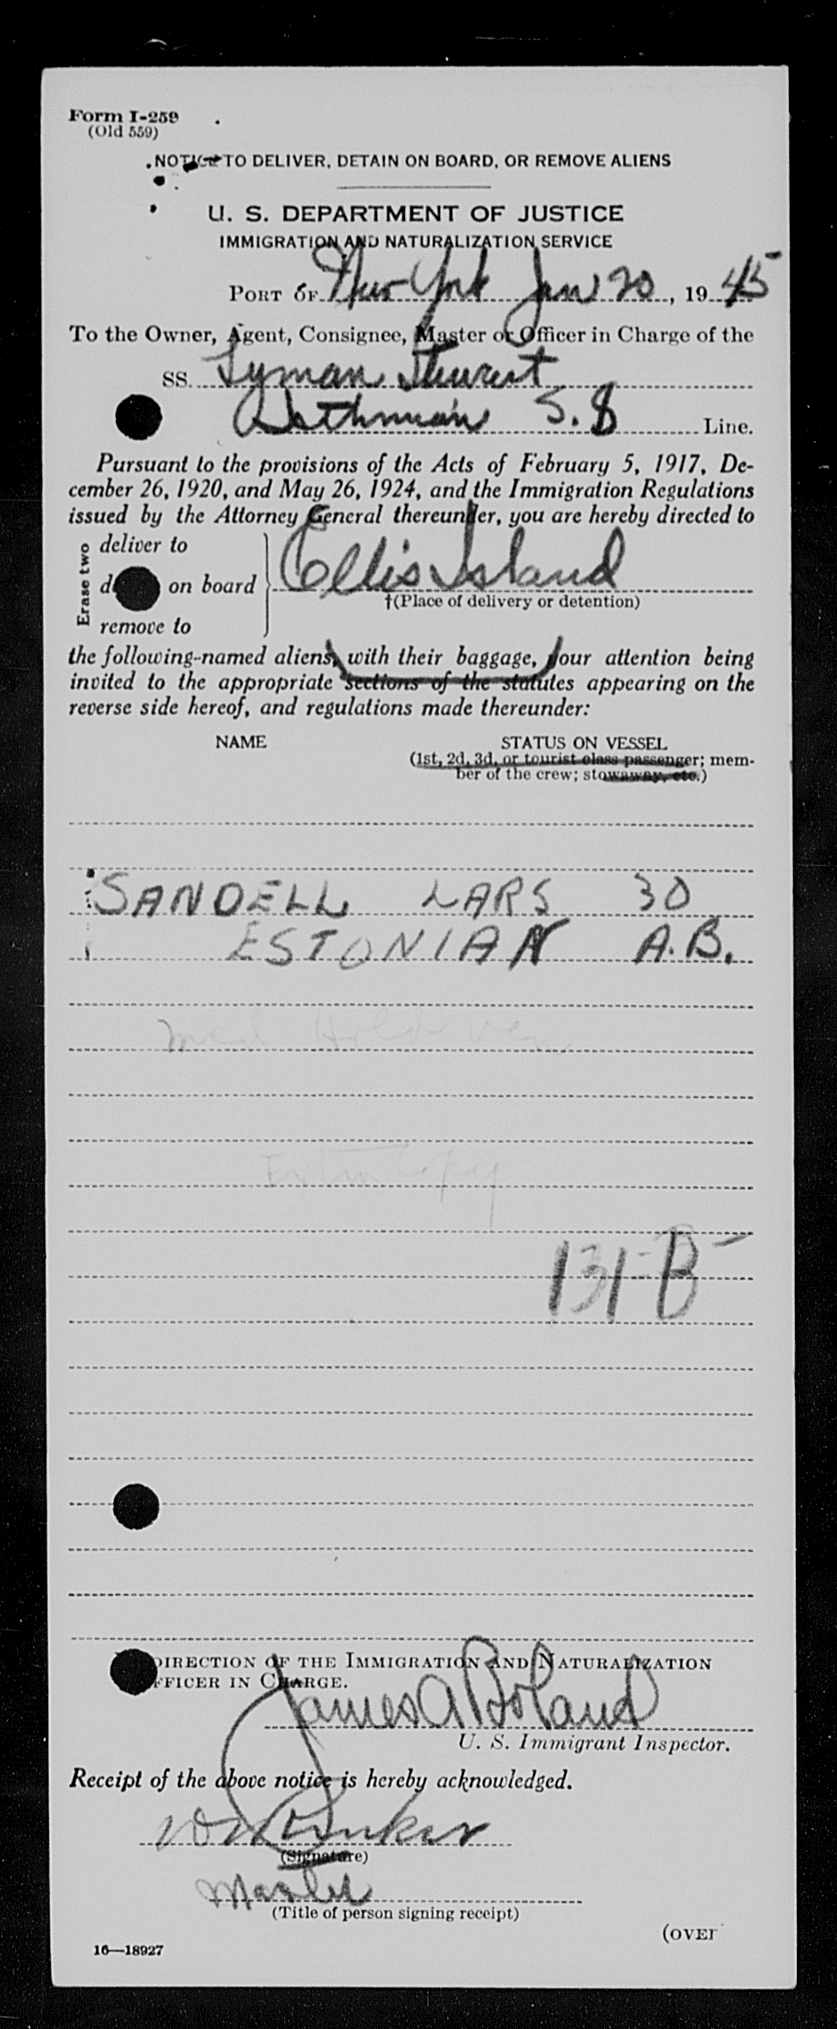 Form I-259
(Old 559)
NOTICE TO DELIVER, DETAIN ON BOARD, OR REMOVE ALIENS
U. S. DEPARTMENT OF JUSTICE
IMMIGRATION AND NATURALIZATION SERVICE
PORT OF New York Jan 20, 1945
To the Owner, Agent, Consignee, Master or Officer in Charge of the
SS. Lyman Stewart
Isthmian S.S Line.
Pursuant to the provisions of the Acts of February 5, 1917, De-
cember 26, 1920, and May 26, 1924, and the Immigration Regulations
issued by the Attorney General thereunder, you are hereby directed to
Erase two
deliver to
on board
remove to
Ellis Island
†(Place of delivery or detention)
the following-named aliens, with their baggage, your attention being
invited to the appropriate sections of the statutes appearing on the
reverse side hereof, and regulations made thereunder:
NAME STATUS ON VESSEL
(1st, 2d, 3d, or tourist class passenger; mem-
ber of the crew; stowaway, etc.)
SANDELL LARS 30
ESTONIAN A.B.
Extra Copy
131-B
DIRECTION OF THE IMMIGRATION AND NATURALIZATION
OFFICER IN CHARGE.
James A Boland
U. S. Immigrant Inspector.
Receipt of the above notice is hereby acknowledged.
(Signature)
Master
(Title of person signing receipt)
(OVER
16—18927